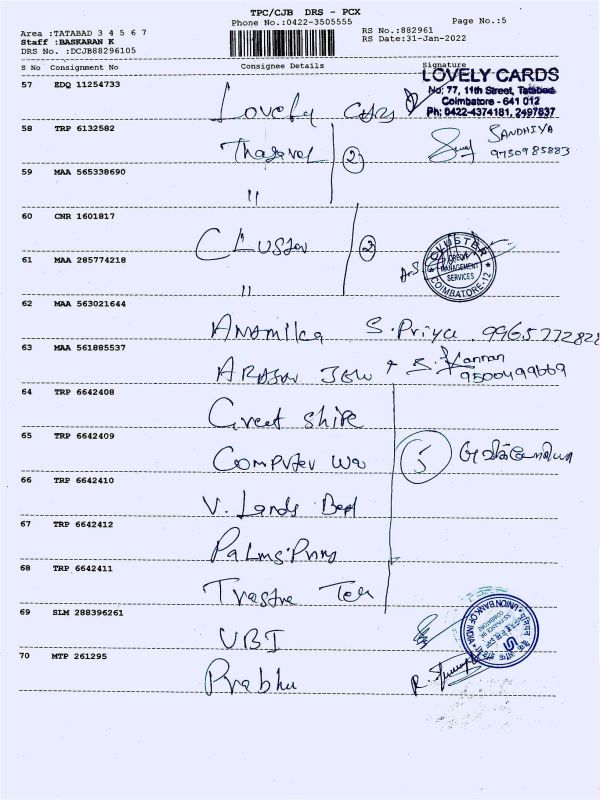 TPC/CJB DRS - PCX
Phone No.:0422-3505555
Page No.:5
Area :TATABAD 3 4 5 6 7
Staff :BASKARAN K
DRS No. :DCJB88296105
RS No.:882961
RS Date:31-Jan-2022
S No Consignment No Consignee Details Signature
LOVELY CARDS
No: 77, 11th Street, Tatabad
Coimbatore - 641 012
Ph: 0422-4374181, 2497837
57 EDQ 11254733 Lovely
58 TRP 6132582 2 SANDHIYA
9750985883
59 MAA 565338690 "
60 CNR 1601817 Cluster 2
CLUSTER
CREDIT
MANAGEMENT
SERVICES
COIMBATORE-12
61 MAA 285774218 "
62 MAA 563021644 Anamika S. Priya 9965772828
63 MAA 561885537 Kannan
9500499669
64 TRP 6642408 Great
65 TRP 6642409 Computer 5
66 TRP 6642410 V. Lands
67 TRP 6642412 Palms
68 TRP 6642411
69 SLM 288396261 UBI
UNION BANK OF INDIA
70 MTP 261295 Prabhu